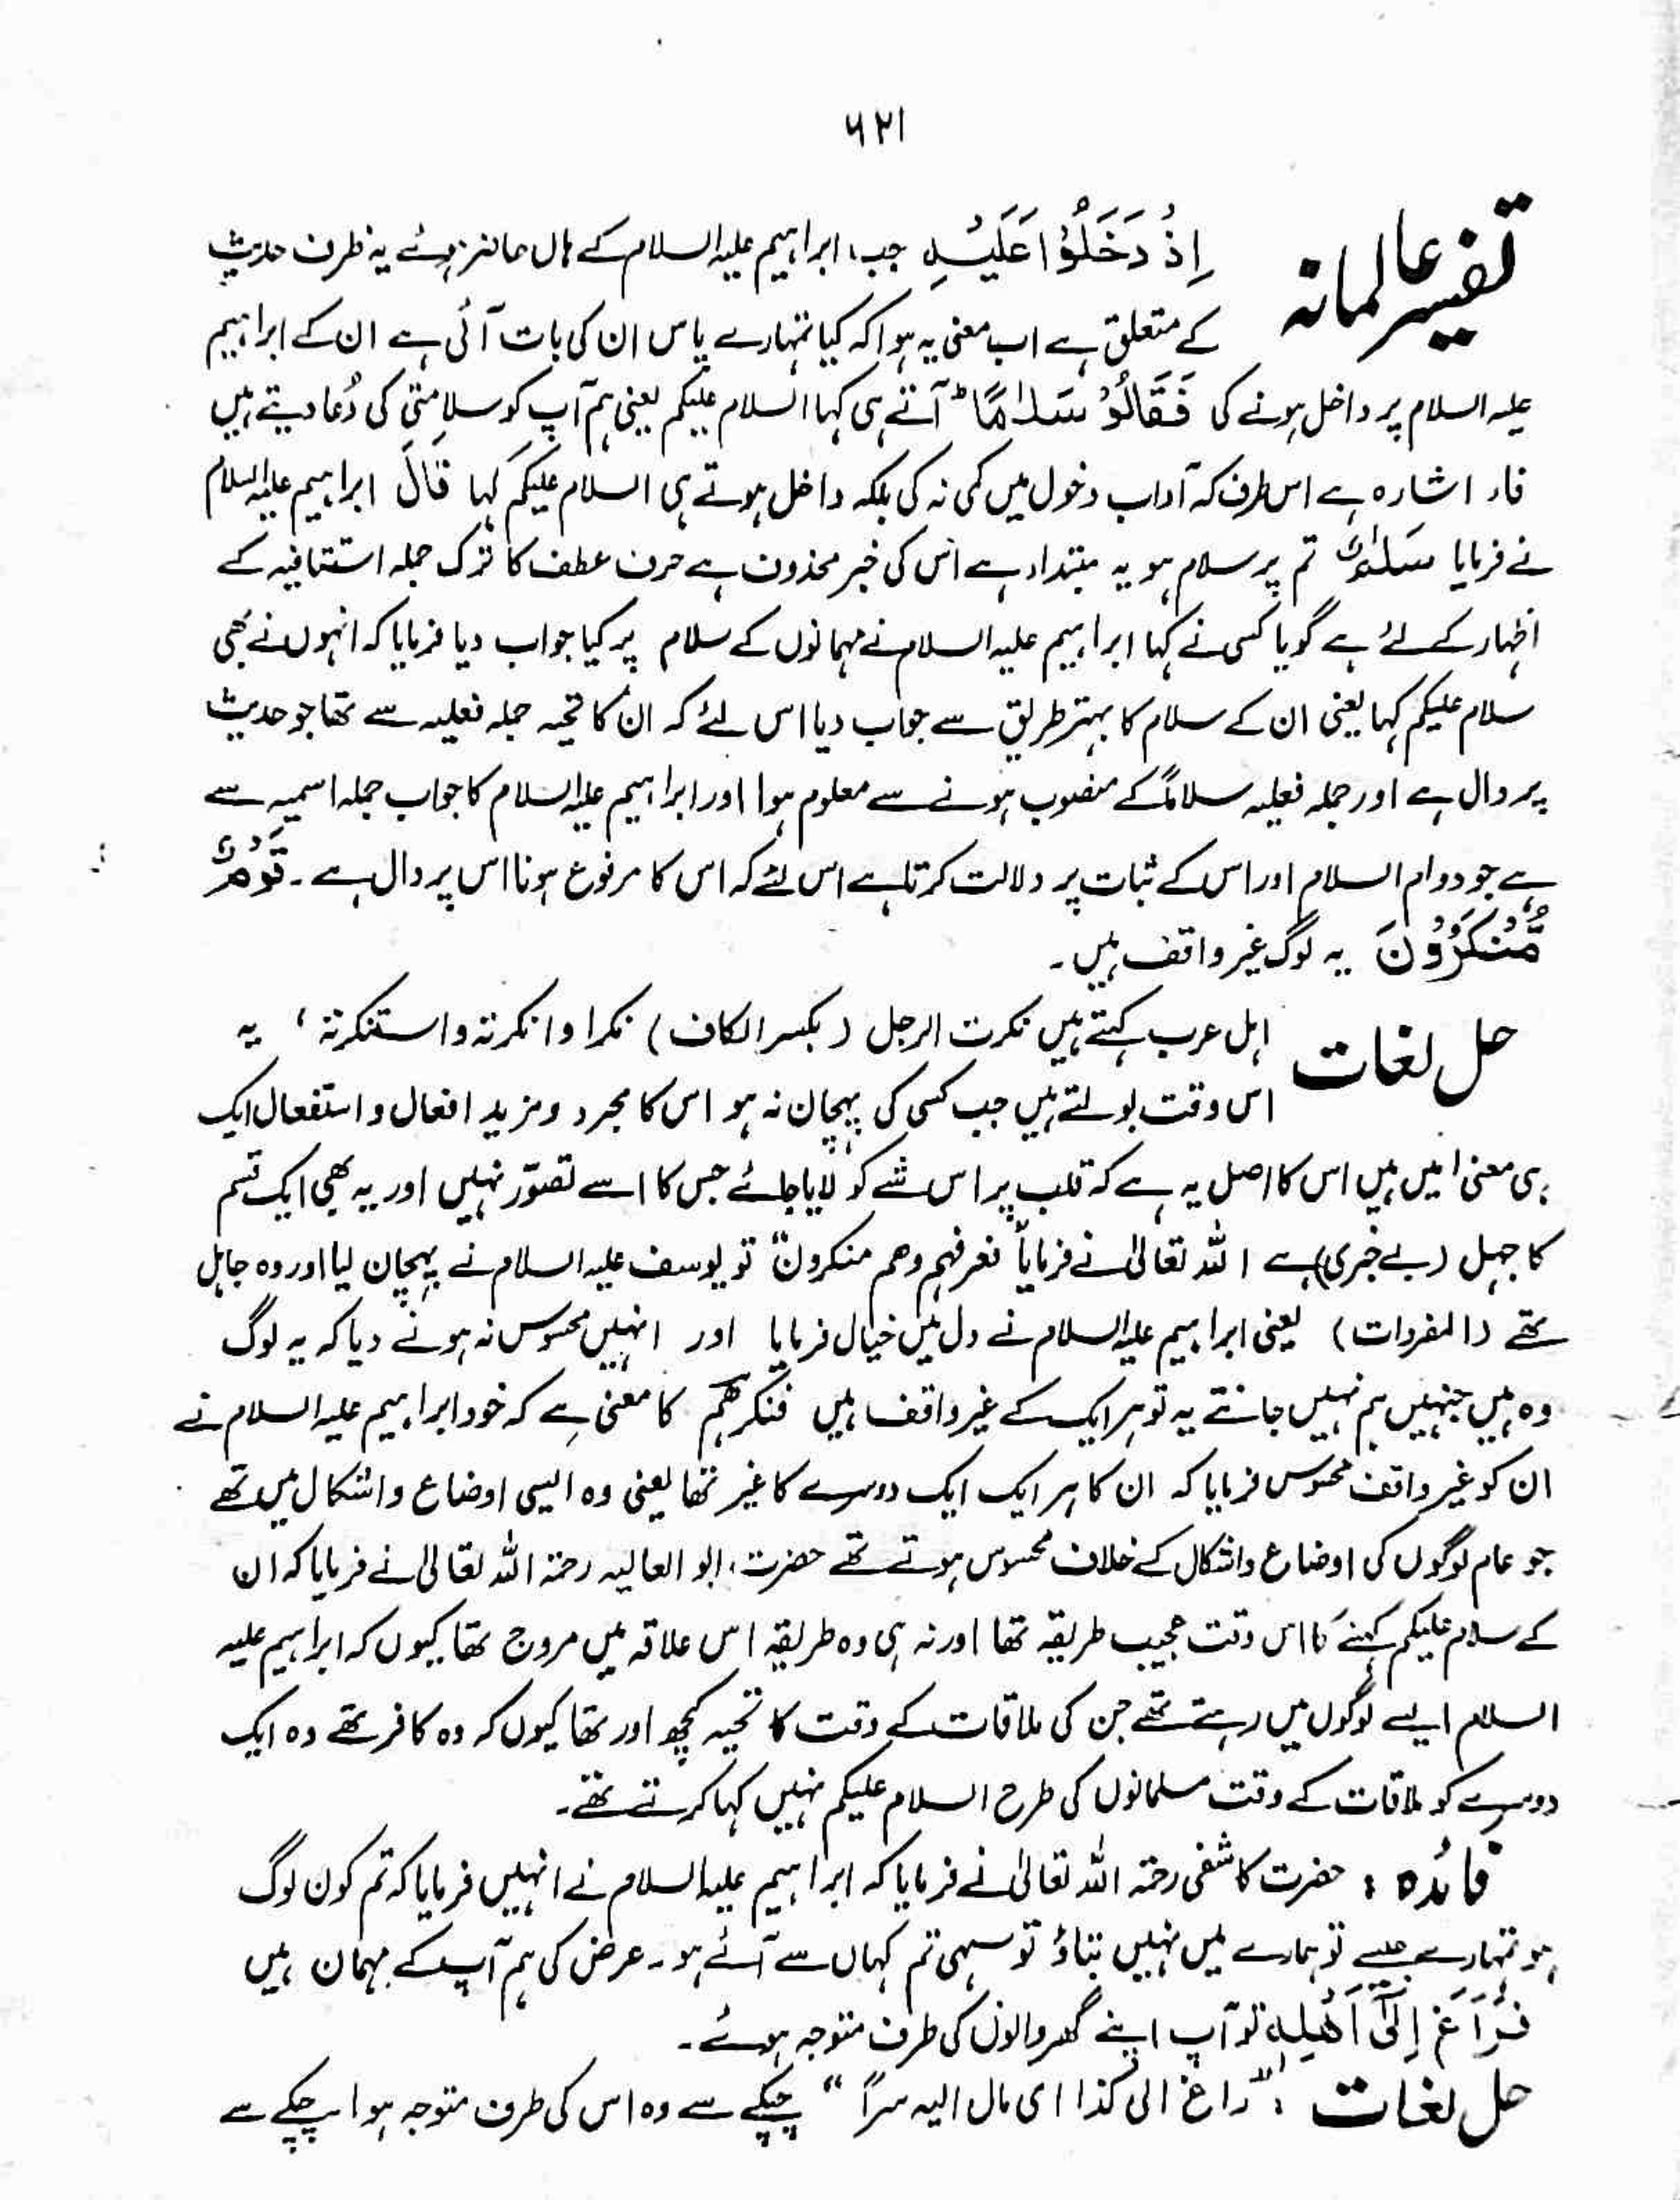 ۶۲۱
تفسیر عالمانہ
اِذْ دَخَلُوْا عَلَیْہِ جب ابراہیم علیہ السلام کے ہاں حاضر ہوئے یہ ظرف حدیث
کے متعلق ہے اب معنی یہ ہوا کہ کیا تمہارے پاس ان کی بات آئی ہے ان کے ابراہیم
علیہ السلام پر داخل ہونے کی فَقَالُوْا سَلٰمًا ؕ آتے ہی کہا السلام علیکم یعنی ہم آپ کو سلامتی کی دُعا دیتے ہیں
فاء اشارہ ہے اس طرف کہ آداب دخول میں کمی نہ کی بلکہ داخل ہوتے ہی السلام علیکم کہا قَالَ ابراہیم علیہ السلام
نے فرمایا سَلٰمٌ تم پر سلام ہو یہ مبتداء ہے اس کی خبر محذوف ہے حرف عطف کا ترک جملہ استنافیہ کے
اظہار کے لئے ہے گویا کسی نے کہا ابراہیم علیہ السلام نے مہمانوں کے سلام پر کیا جواب دیا فرمایا کہ انہوں نے بھی
سلام علیکم کہا یعنی ان کے سلام کا بہتر طریق سے جواب دیا اس لئے کہ ان کا تحیہ جملہ فعلیہ سے تھا جو حدیث
پر دال ہے اور جملہ فعلیہ سلاماً کے منصوب ہونے سے معلوم ہوا اور ابراہیم علیہ السلام کا جواب جملہ اسمیہ سے
ہے جو دوام السلام اور اس کے ثبات پر دلالت کرتا ہے اس لئے کہ اس کا مرفوع ہونا اس پر دال ہے ۔ قَوْمٌ
مُّنْکَرُوْنَ یہ لوگ غیر واقف ہیں ۔
حل لغات
اہل عرب کہتے ہیں نکرت الرجل (بکسر الکاف) نکرا وانکرتہ واستنکرتہ ، یہ
اس وقت بولتے ہیں جب کسی کی پہچان نہ ہو اس کا مجرد و مزید افعال و استفعال ایک
ہی معنی میں ہیں اس کا اصل یہ ہے کہ قلب پر اس شے کو لایا جائے جس کا اسے تصوّر نہیں اور یہ بھی ایک قسم
کا جہل (بے خبری) ہے اللہ تعالیٰ نے فرمایا" فعرفہم وھم منکرون" تو یوسف علیہ السلام نے پہچان لیا اور وہ جاہل
تھے (المفردات) یعنی ابراہیم علیہ السلام نے دل میں خیال فرمایا اور انہیں محسوس نہ ہونے دیا کہ یہ لوگ
وہ ہیں جنہیں ہم نہیں جانتے یہ تو ہر ایک کے غیر واقف ہیں فنکرھم کا معنی ہے کہ خود ابراہیم علیہ السلام نے
ان کو غیر واقف محسوس فرمایا کہ ان کا ہر ایک ایک دوسرے کا غیر تھا یعنی وہ ایسی اوضاع و اشکال میں تھے
جو عام لوگوں کی اوضاع و اشکال کے خلاف محسوس ہوتے تھے حضرت ابو العالیہ رحمۃ اللہ تعالیٰ نے فرمایا کہ ان
کے سلام علیکم کہنے کا اس وقت عجیب طریقہ تھا اور نہ ہی وہ طریقہ اس علاقہ میں مروج تھا کیوں کہ ابراہیم علیہ
السلام ایسے لوگوں میں رہتے تھے جن کی ملاقات کے وقت کا تحیہ کچھ اور تھا کیوں کہ وہ کافر تھے وہ ایک
دوسرے کو ملاقات کے وقت مسلمانوں کی طرح السلام علیکم نہیں کہا کرتے تھے ۔
فائدہ : حضرت کاشفی رحمۃ اللہ تعالیٰ نے فرمایا کہ ابراہیم علیہ السلام نے انہیں فرمایا کہ تم کون لوگ
ہو تمہارے جیسے تو ہمارے میں نہیں بتاؤ تو سہی تم کہاں سے آئے ہو ۔ عرض کی ہم آپ کے مہمان ہیں
فَرَاغَ اِلٰٓی اَھْلِہٖ تو آپ اپنے گھر والوں کی طرف متوجہ ہوئے ۔
حل لغات : "راغ الی کذا ای مال الیہ سراً" چپکے سے وہ اس کی طرف متوجہ ہوا چپکے سے